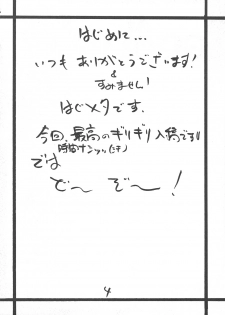 はじめに…
いつも ありがとうございます!
&
すみません!
はじメタです.
今回、最高のギリギリ入稿です!!
では
ど〜ぞ〜!
4